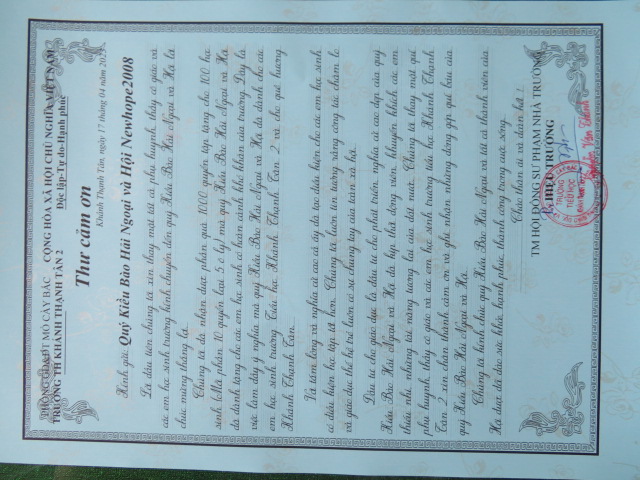 PHÒNG GD&ĐT MỎ CÀY BẮC CỘNG HÒA XÃ HỘI CHỦ NGHĨA VIỆT NAM
TRƯỜNG TH KHÁNH THẠNH TÂN 2 Độc lập-Tự do-Hạnh phúc
Khánh Thạnh Tân, ngày 17 tháng 04 năm
Thư cảm ơn
Kính gửi: Quý Kiều Bào Hải Ngoại và Hội Newhope2008
Là đầu tiên chúng tôi xin thay mặt tất cả phụ huynh, thầy cô giáo và
các em học sinh trường kính chuyển đến quý Kiều Bào Hải Ngoại và Hội là
chúc mừng
Chúng tôi đã nhận được phần quà 1000 quyển tập tặng cho 100 học
sinh (Mỗi phần 10 quyển loại 5 ô ly) mà quý Kiều Bào Hải Ngoại và Hội
đã dành tặng cho các em học sinh có hoàn cảnh khó khăn của trường. Đây là
việc làm đầy ý nghĩa mà quý Kiều Bào Hải Ngoại và Hội đã dành cho các
em học sinh trường Tiểu học Khánh Thạnh Tân 2 và cho quê hương
Khánh Thạnh Tân.
Với tấm lòng và nghĩa cử cao cả ấy đã tạo điều kiện cho các em học sinh
có điều kiện học tập tốt hơn. Chúng tôi luôn tin tưởng rằng công tác chăm lo
và giáo dục thế hệ trẻ luôn có sự chung tay của toàn xã hội.
Đầu tư cho giáo dục là đầu tư cho phát triển, nghĩa cử cao đẹp của quý
Kiều Bào Hải Ngoại và Hội đã kịp thời động viên, khuyến khích các em
thiếu nhi những tài năng tương lai của đất nước. Chúng tôi thay mặt quí
phụ huynh, thầy cô giáo và các em học sinh trường tiểu học Khánh Thạnh
Tân 2 xin chân thành cảm ơn và ghi nhận những đóng góp quí báu của
quý Kiều Bào Hải Ngoại và Hội.
Chúng tôi kính chúc quý Kiều Bào Hải Ngoại và tất cả thành viên của
Hội được dồi dào sức khỏe, hạnh phúc, thành công trong cuộc sống.
Chào thân ái và đoàn kết!
TM HỘI ĐỒNG SƯ PHẠM NHÀ TRƯỜNG
HIỆU TRƯỞNG
TRƯỜNG
TIỂU HỌC